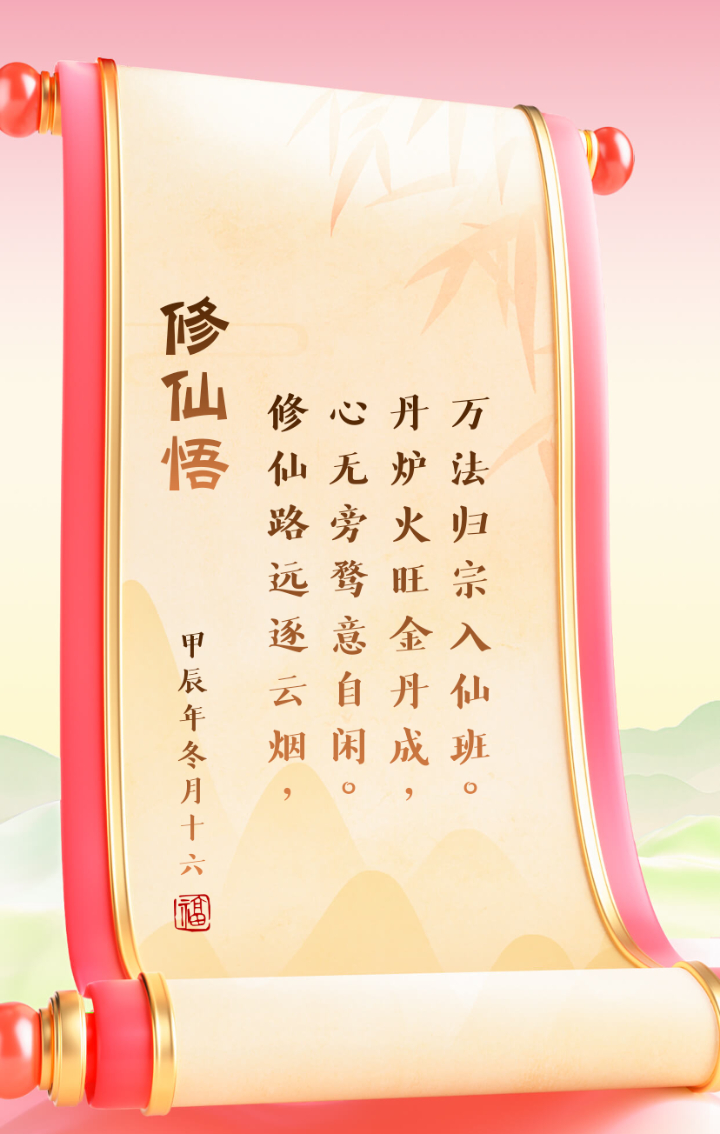 修仙悟
修仙路远逐云烟，
心无旁骛意自闲。
丹炉火旺金丹成，
万法归宗入仙班。
甲辰年冬月十六
福